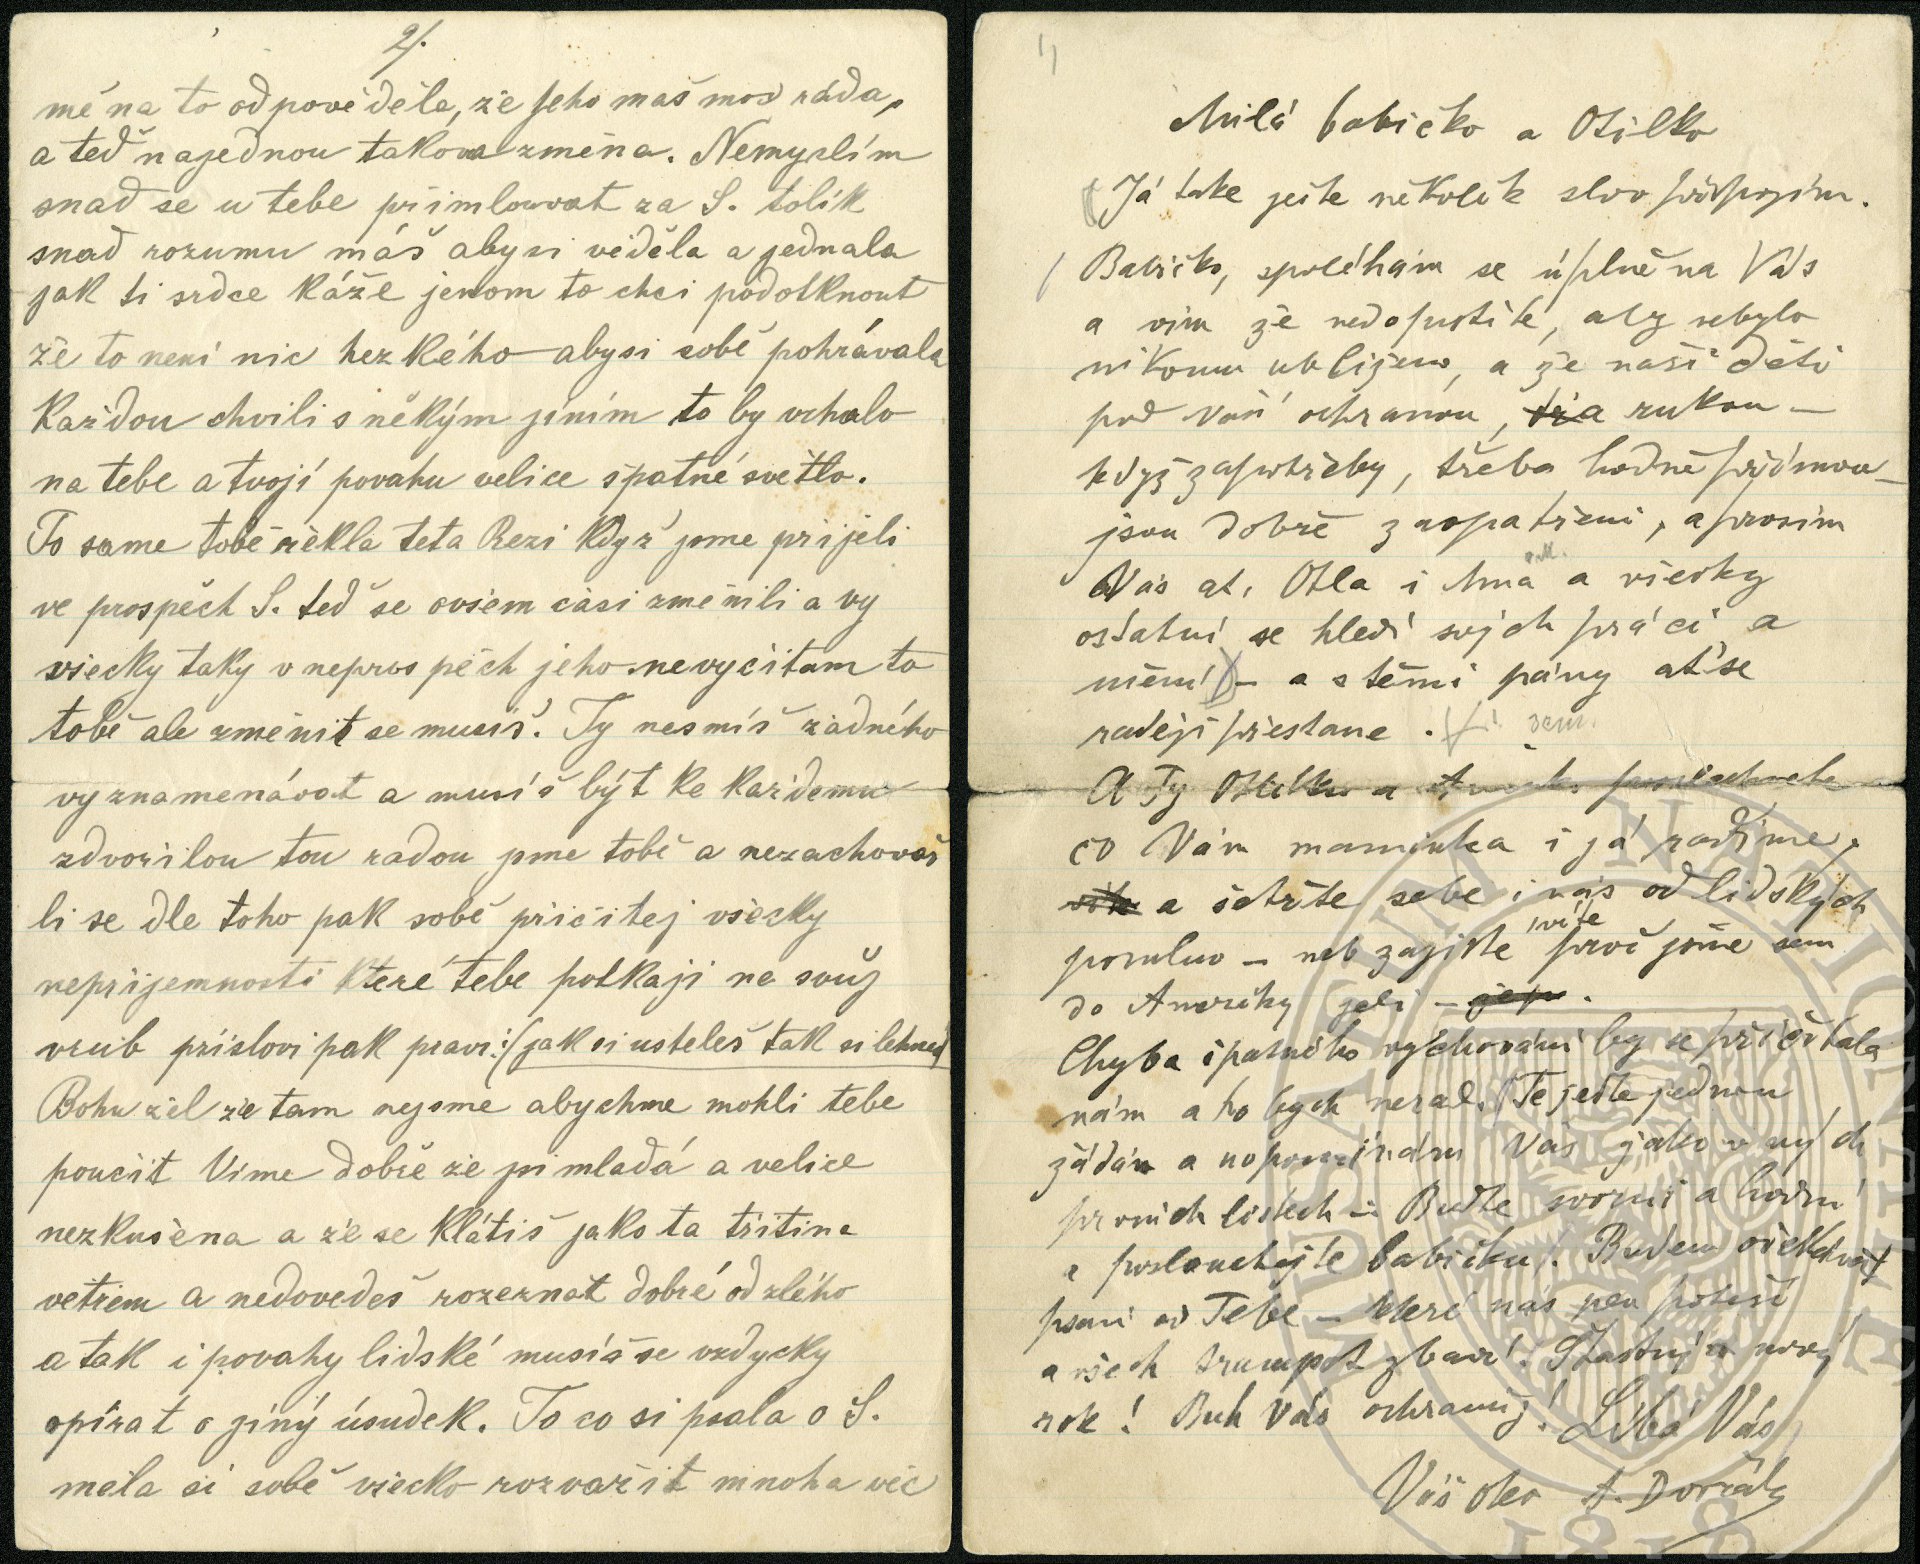 2/.
mě na to odpověděla, že jeho maš moc ráda,
a teď najednou takova změna. Nemyslím
snad se u tebe přimlouvat za S. tolik
snad rozumu máš aby si věděla a jednala
jak ti srdce káže jenom to chci podotknout
že to neni nic hezkého aby si sobě pohrávala
každou chvili s někým jiním to by vrhalo
na tebe a tvoji povahu velice špatné světlo.
To same tobě řekla teta Rezi když jsme prijeli
ve prospěch S. teď se ovšem časi změnili a vy
všecky taky v neprospěch jeho nevyčitam to
tobě ale změnit se musiš. Ty nesmíš žádného
vyznamenávat a musíš být ke každemu
zdvořilou tou radou jsme tobě a nezachovaš
li se dle toho pak sobě přičitej všecky
nepříjemnosti které tebe potkaji na svůj
vrub prislovi pak pravi:(jak si usteleš tak si lehneš)
Bohu žel že tam nejsme abychme mohli tebe
poučit Vime dobře že jsi mladá a velice
nezkušena a že se klátiš jako ta třtina
větrem a nedovedeš rozeznat dobré od zlého
a tak i povahy lidské musíš se vždycky
opírat o jiný úsudek. To co si psala o S.
měla si sobě všecko rozvařit mnoha věc
1)
Milá babičko a Otilko
Já take ješte několik slov připojím.
Babičko, spoléhám se úplně na Vás
a vim že nedopustíte, aby nebylo
nikomu ublíženo, a že naši děti
pod vaši ochranou, a rukou –
když zapotřeby, třeba hodně přísnou –
jsou dobře zaopatřeni, a prosim
Vás at, Otla i Ana a všecky
ostatní se hledí svých prací a
uměni – a s těmi pány at' se
raději přestane. sem.
A Ty Otilko a Aninko poslechnete
co Vám maminka i já radíme,
a šetřte sebe i nás od lidských
pomluv – neb zajiste víte proč jsme sem
do Ameriky jeli – .
Chyba špatného vychováni by se přičítala
nám a to bych nerad. Te ješte jednou
žádám a napomínám Vás jako v mých
prvnich listech – Buďte svorni a hodní
a poslouchejte babičku. Budem očekávat
psaní od Tebe – které nás jen potěší
a všech trumpot zbaví. Štastný nový
rok! Buh Vás ochranuj! Líbá Vás
Váš otec A. Dvořák